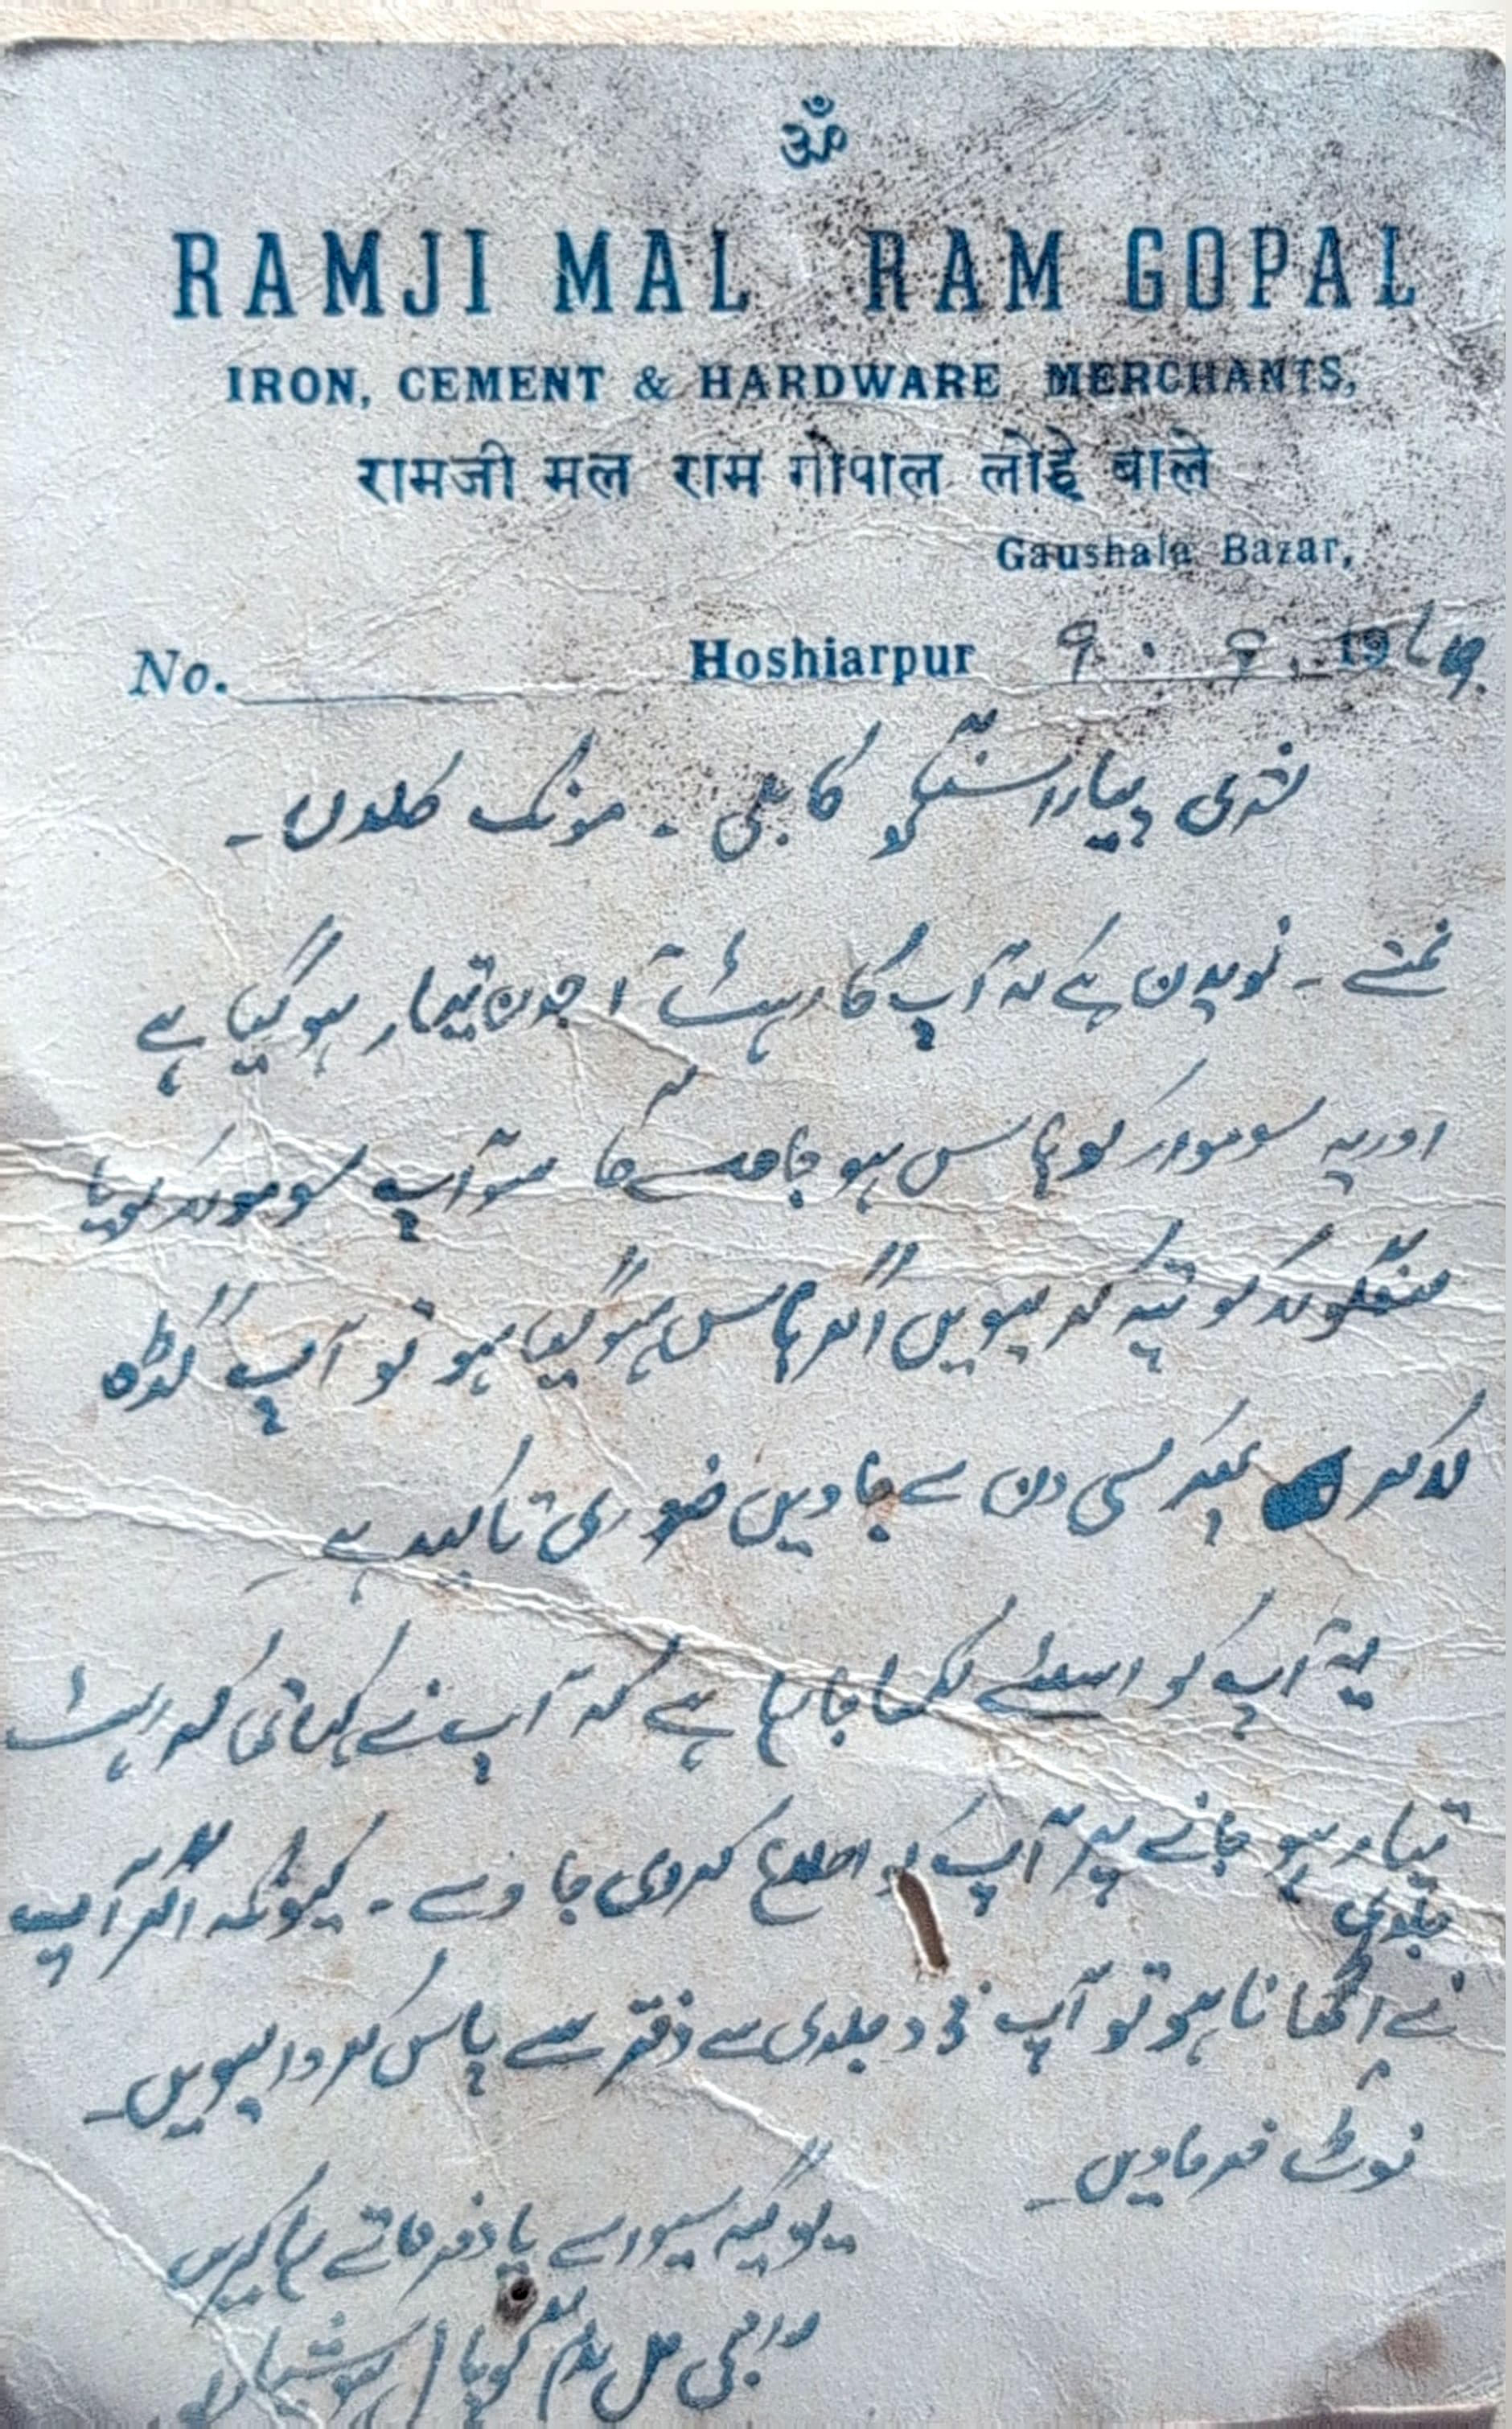 ॐ
RAMJI MAL RAM GOPAL
IRON, CEMENT & HARDWARE MERCHANTS,
रामजी मल राम गोपाल लोहे वाले
Gaushala Bazar,
No. Hoshiarpur 9. 9. 19
شری پیارا سنگھ کابلی - مونک کلاں -
نمستے - نویدن ہے کہ آپ کا رہٹ آجدن تیار ہو گیا ہے
اور یہ سوموار کو پاس ہو جائے گا سو آپ سوموار کو یا
منگلوار کو پتہ کر لیویں اگر پاس ہو گیا ہو تو آپ گڈہ
لاکر پھر کسی دن لے جاویں ضروری تاکید ہے
یہ آپ کو اسلئے لکھا جا رہا ہے کہ آپ نے کہا تھا کہ رہٹ
تیار ہو جانے پر آپ کو اطلاع کر دی جاوے - کیونکہ اگر آپ
جلدی
نے اٹھانا ہو تو آپ خود جلدی سے دفتر سے پاس کروا لیویں -
نوٹ فرماویں -
یوگیہ سیوا سے یاد فرماتے رہا کریں
رامجی مل رام گوپال ہوشیارپور